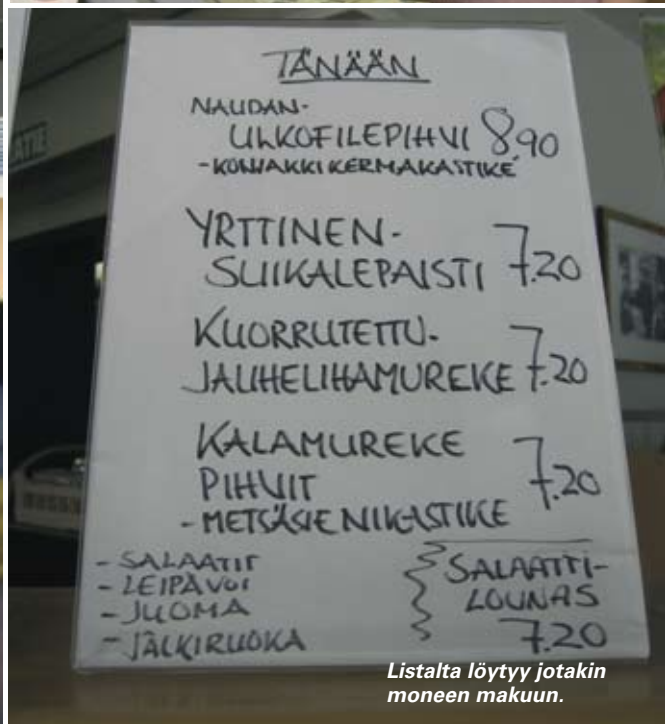 TÄNÄÄN
NAUDAN-
ULKOFILEPIHVI 8,90
-KONJAKKIKERMAKASTIKE
YRTTINEN-
SUIKALEPAISTI 7.20
KUORRUTETTU-
JAUHELIHAMUREKE 7.20
KALAMUREKE
PIHVIT 7.20
-METSÄSIENIKASTIKE
-SALAATIT
-LEIPÄVOI
-JUOMA
-JÄLKIRUOKA
SALAATTI-
LOUNAS
7.20
Listalta löytyy jotakin
moneen makuun.